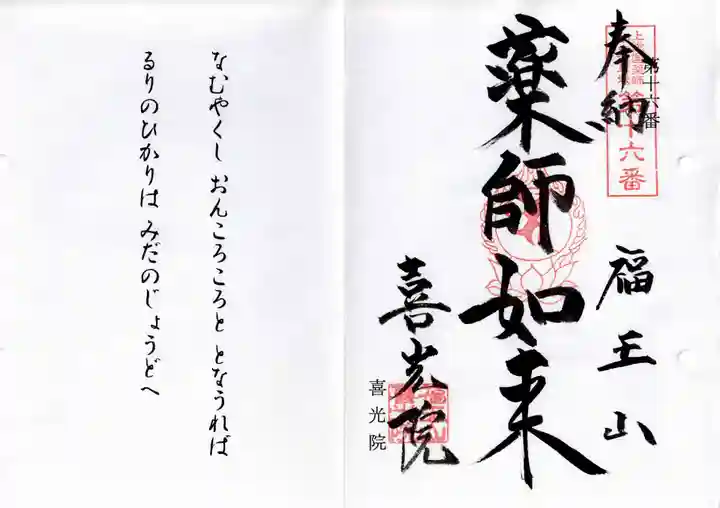 奉納
第十六番
第十六番
福王山
薬師如来
喜光院
喜光院
なむやくし おんころころと となうれば
るりのひかりは みだのじょうどへ